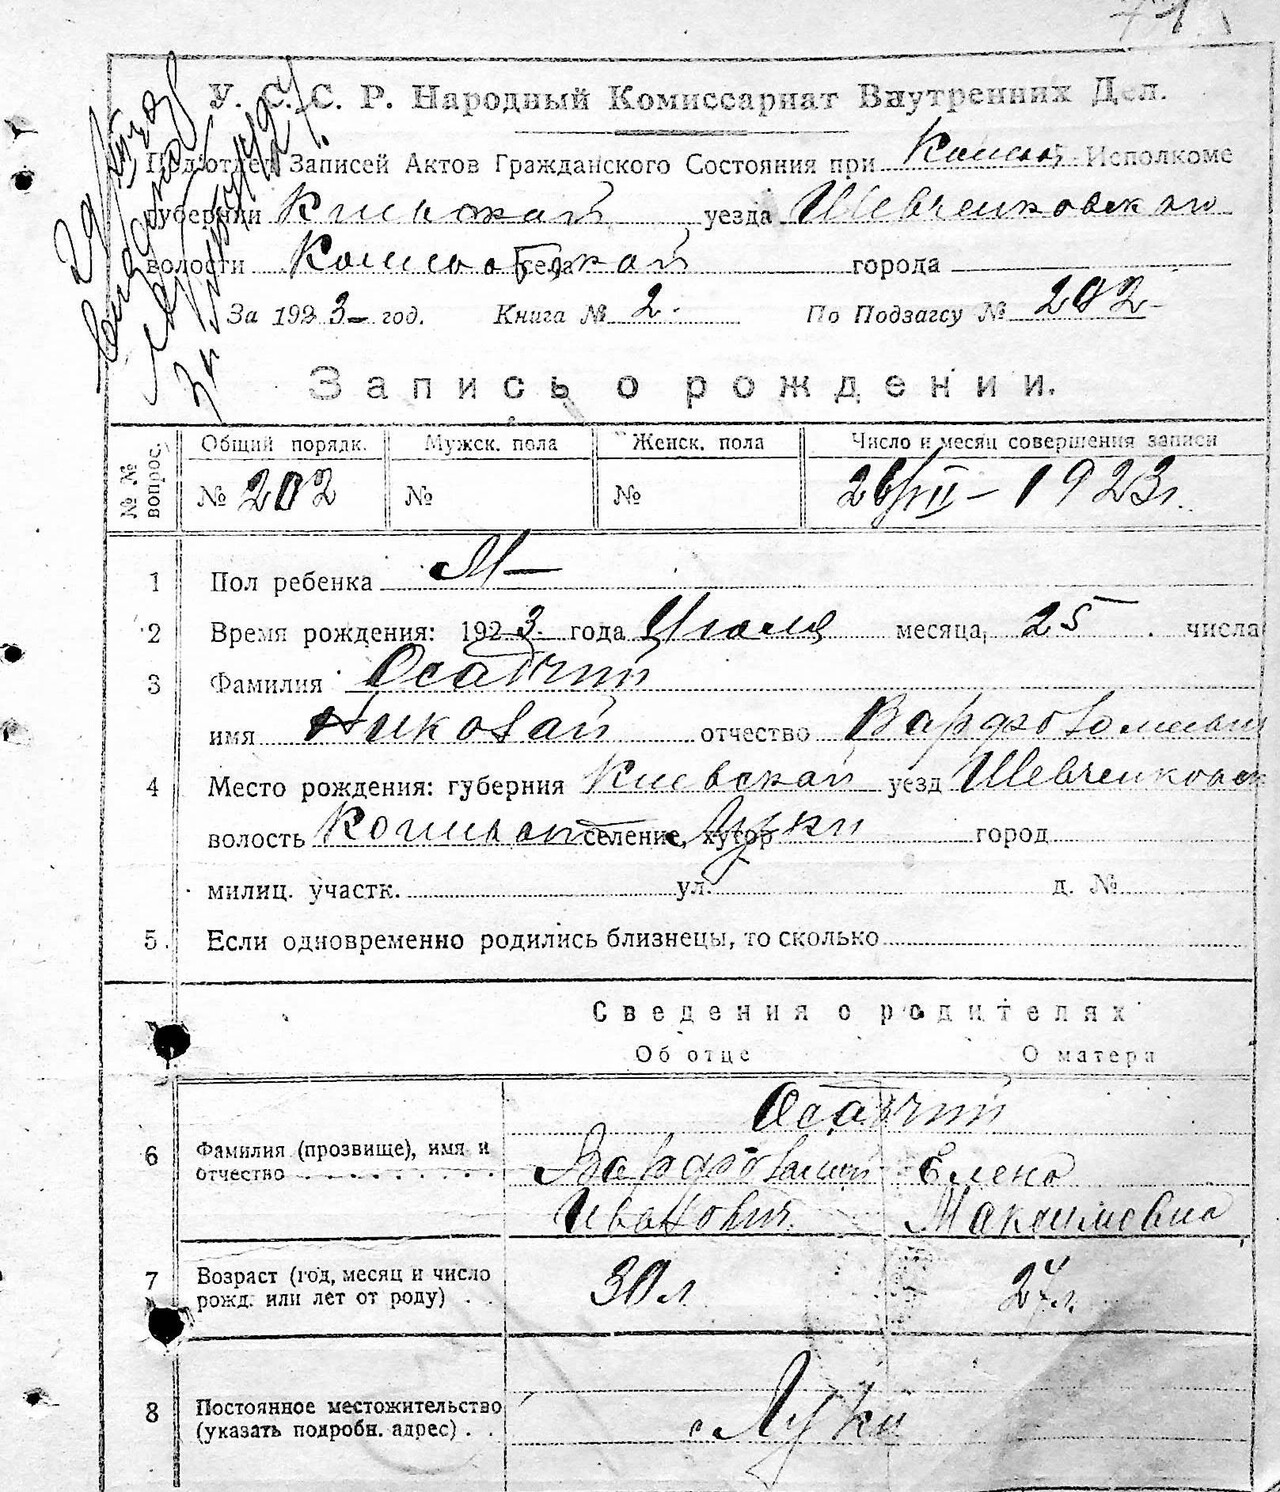 71
У. С. С. Р. Народный Комиссариат Внутренних Дел.
Под'отдел Записей Актов Гражданского Состояния при Исполкоме
губернии Киевской уезда Шевченковского
волости села города
За 1923 год. Книга № 2. По Подзагсу № 202
Запись о рождении.
№ № вопрос. Общий порядк. Мужск. пола Женск. пола Число и месяц совершения записи
№ 202 № № 1923 г.
1 Пол ребенка М
2 Время рождения: 1923 года Июля месяца, 25 числа
3 Фамилия Осадчий
имя Николай отчество
4 Место рождения: губерния Киевской уезд Шевченковск
волость селение, хутор Луки город
милиц. участк. ул. д. №
5. Если одновременно родились близнецы, то сколько
Сведения о родителях
Об отце О матери
Осадчий
6 Фамилия (прозвище), имя и отчество Варфоломей Елена
Иванович Максимовна
7 Возраст (год, месяц и число рожд. или лет от роду) 30 л 27 л.
8 Постоянное местожительство (указать подробн. адрес) с Луки